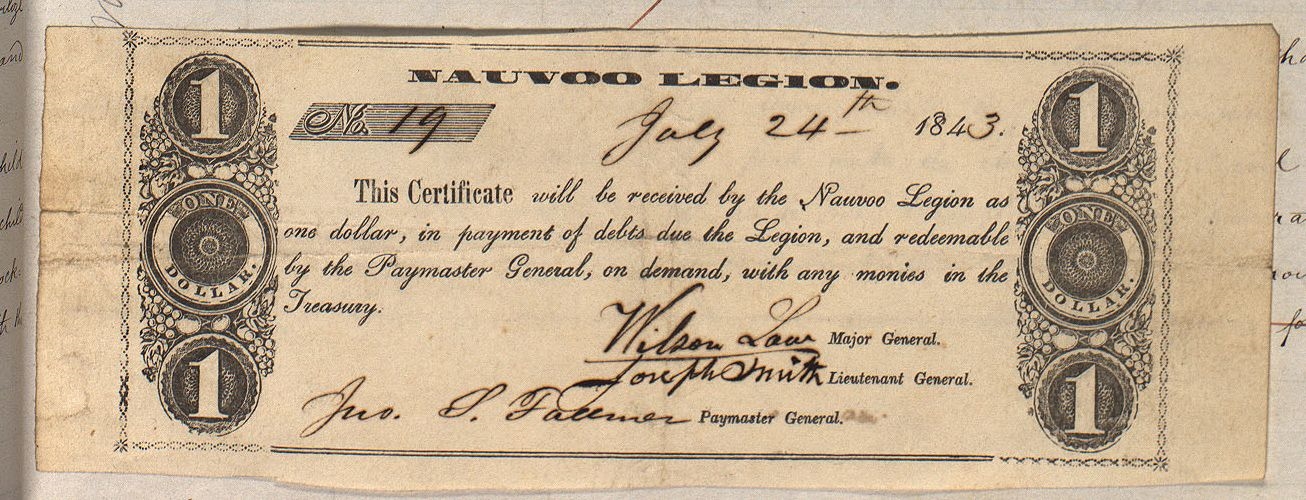 NAUVOO LEGION.
No. 19 July 24th 1843.
This Certificate will be received by the Nauvoo Legion as
one dollar, in payment of debts due the Legion, and redeemable
by the Paymaster General, on demand, with any monies in the
Treasury.
Wilson Law Major General.
Joseph Smith Lieutenant General.
Jno. S. Fullmer Paymaster General.
1
ONE
DOLLAR.
1
1
ONE
DOLLAR.
1